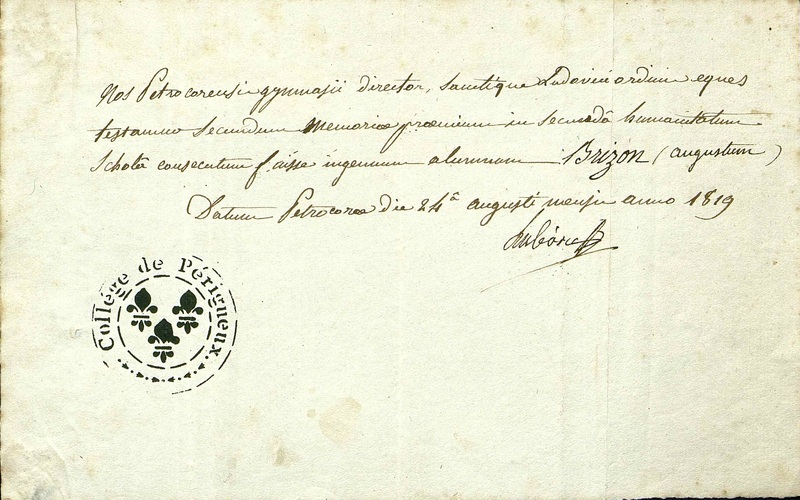 Nos Petrocorensis gymnasii director, Sanctique Ludovici ordinis eques
testamur secundum memoriæ præmium in secundâ humanitatum
Scholâ consecutum fuisse ingenuum alumnum Brizon (augustum)
Datum Petrocoræ die 24â augusti mensis anno 1819
Collège de Périgueux